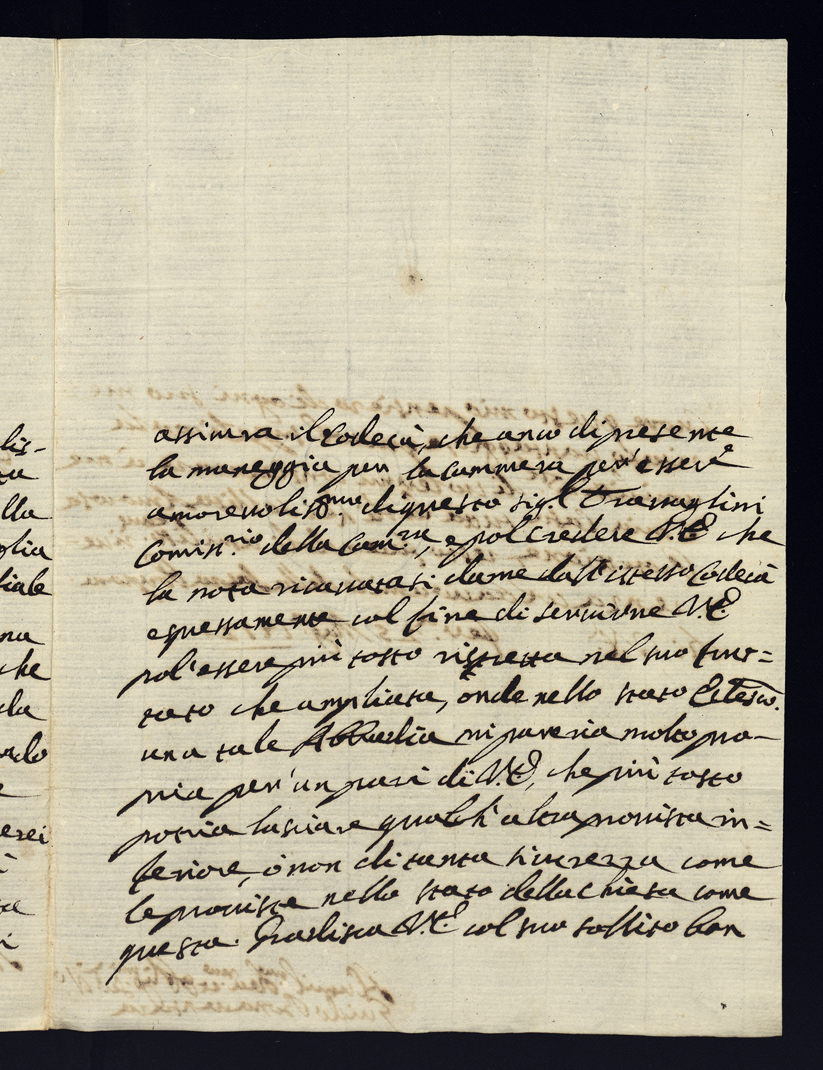 assicura il Codecà, che anco di presente
la maneggia per la Cammera per essere
amorevoliss.mo di questo sig.r Travaglini
Comiss.rio della Cam.ra, e pol credere V.E. che
la nota ricavatasi da me dall'istesso Codecà
espressamente col fine di servirne V.E.
pol'essere più tosto ristretta nel suo frut=
tato che ampliata, onde nello stato
una tale Abbadia mi pareria molto pro-
pria per un pari di V.E., che più tosto
potria lasciare qualch'altra provista in=
feriore, ò non di tanta sicurezza come
le proviste nello stato della Chiesa come
questa. Gradisca V.E. col suo sollito ben
lis-
lla
glia
tiale
na
che
da
ndo
e
erei